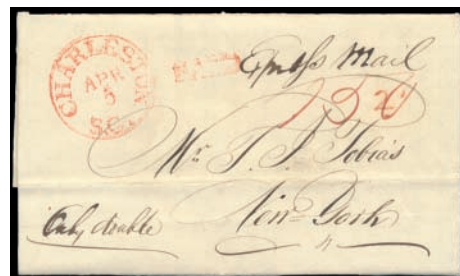 CHARLESTON
APR
5
S.C.
PAID
Express Mail
Mr T. I. Tobias
New-York
Only double